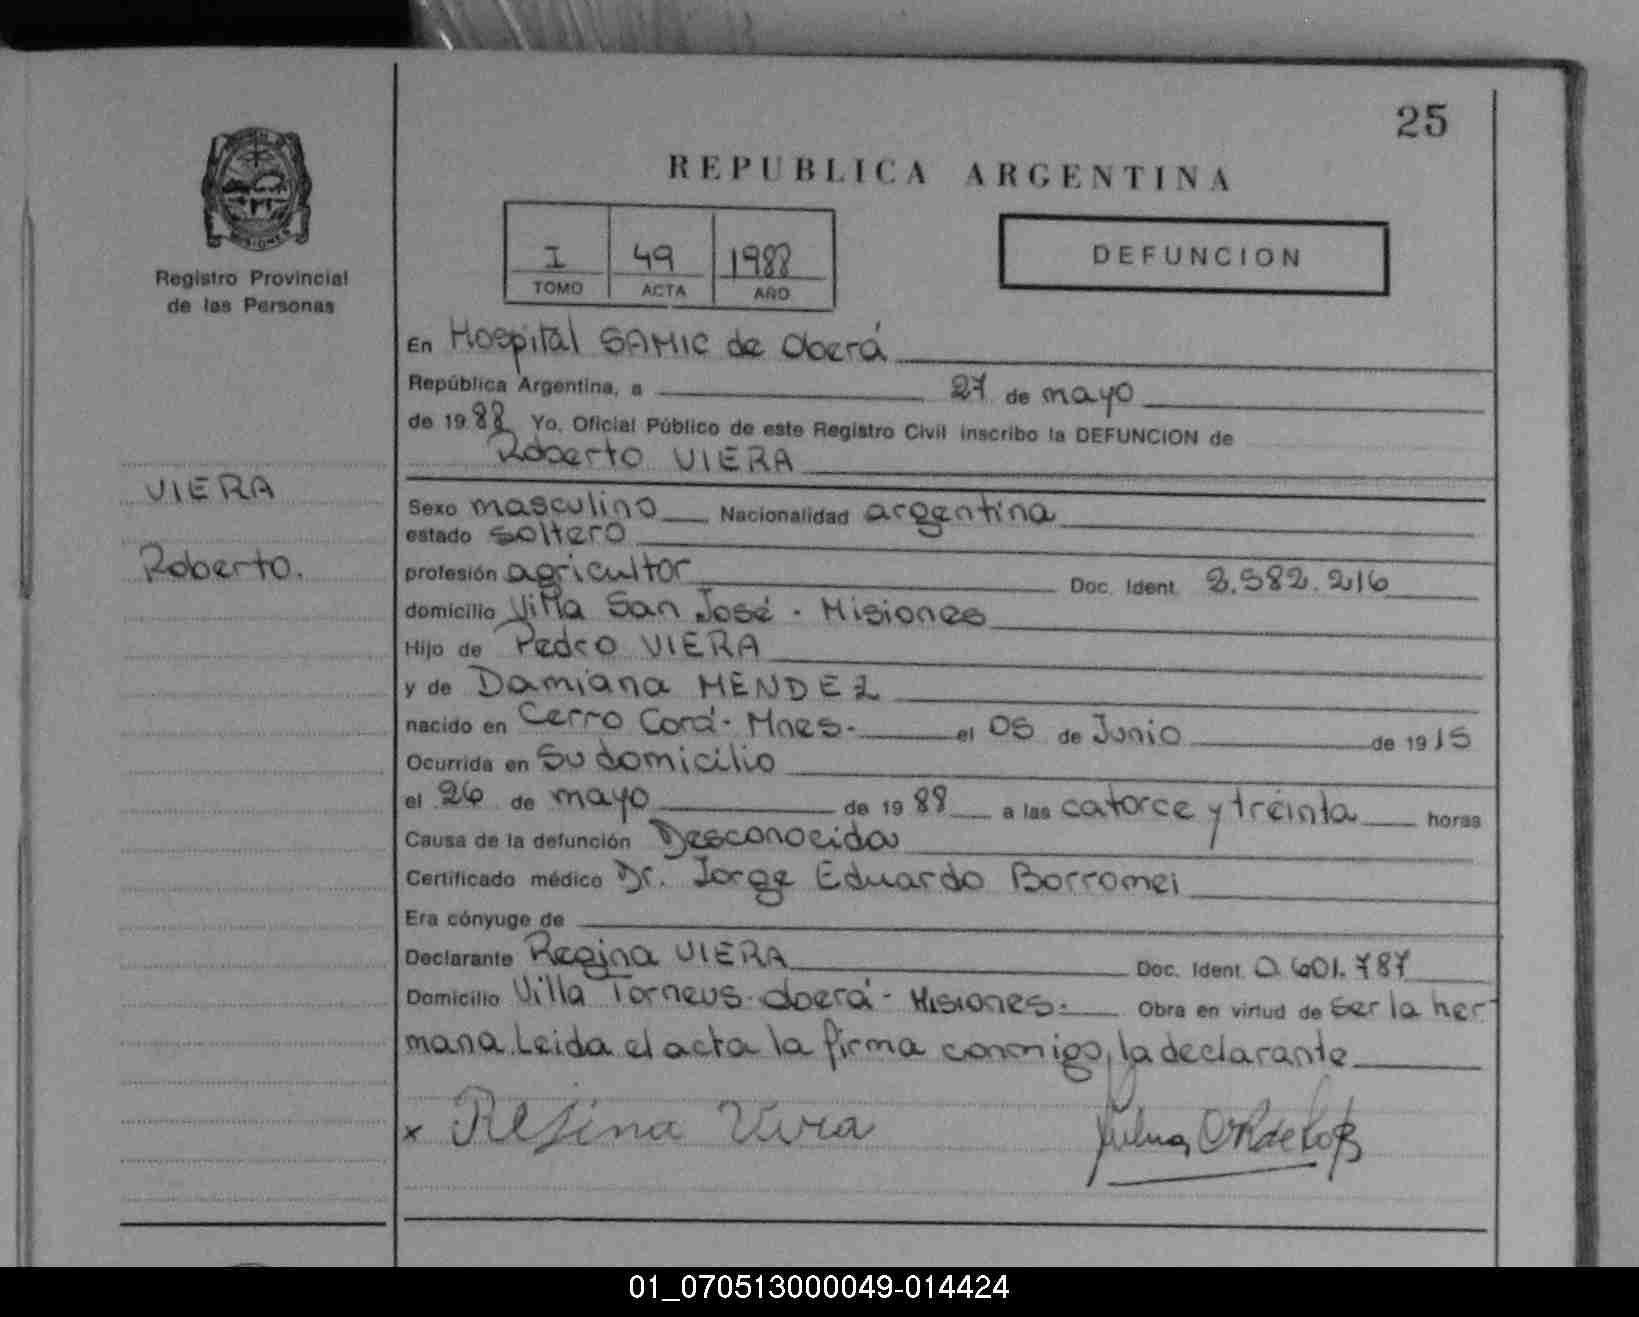 25
REPUBLICA ARGENTINA
MISIONES
Registro Provincial
de las Personas
I 49 1988
TOMO ACTA AÑO
DEFUNCION
En Hospital SAMIC de Oberá
República Argentina, a 27 de mayo
de 1988 Yo, Oficial Público de este Registro Civil inscribo la DEFUNCION de
Roberto VIERA
VIERA
Roberto.
Sexo masculino Nacionalidad argentina
estado soltero
profesión agricultor Doc. Ident. 2.582.216
domicilio Villa San José - Misiones
Hijo de Pedro VIERA
y de Damiana MENDEZ
nacido en Cerro Corá - Mnes. el 05 de Junio de 1915
Ocurrida en Su domicilio
el 26 de mayo de 1988 a las catorce y treinta horas
Causa de la defunción Desconocida
Certificado médico Dr. Jorge Eduardo Borromei
Era cónyuge de
Declarante Regina VIERA Doc. Ident. 0.601.787
Domicilio Villa Torneus - Oberá - Misiones.- Obra en virtud de ser la her
mana. Leida el acta la firma conmigo, la declarante
x Resina Viera
01_070513000049-014424